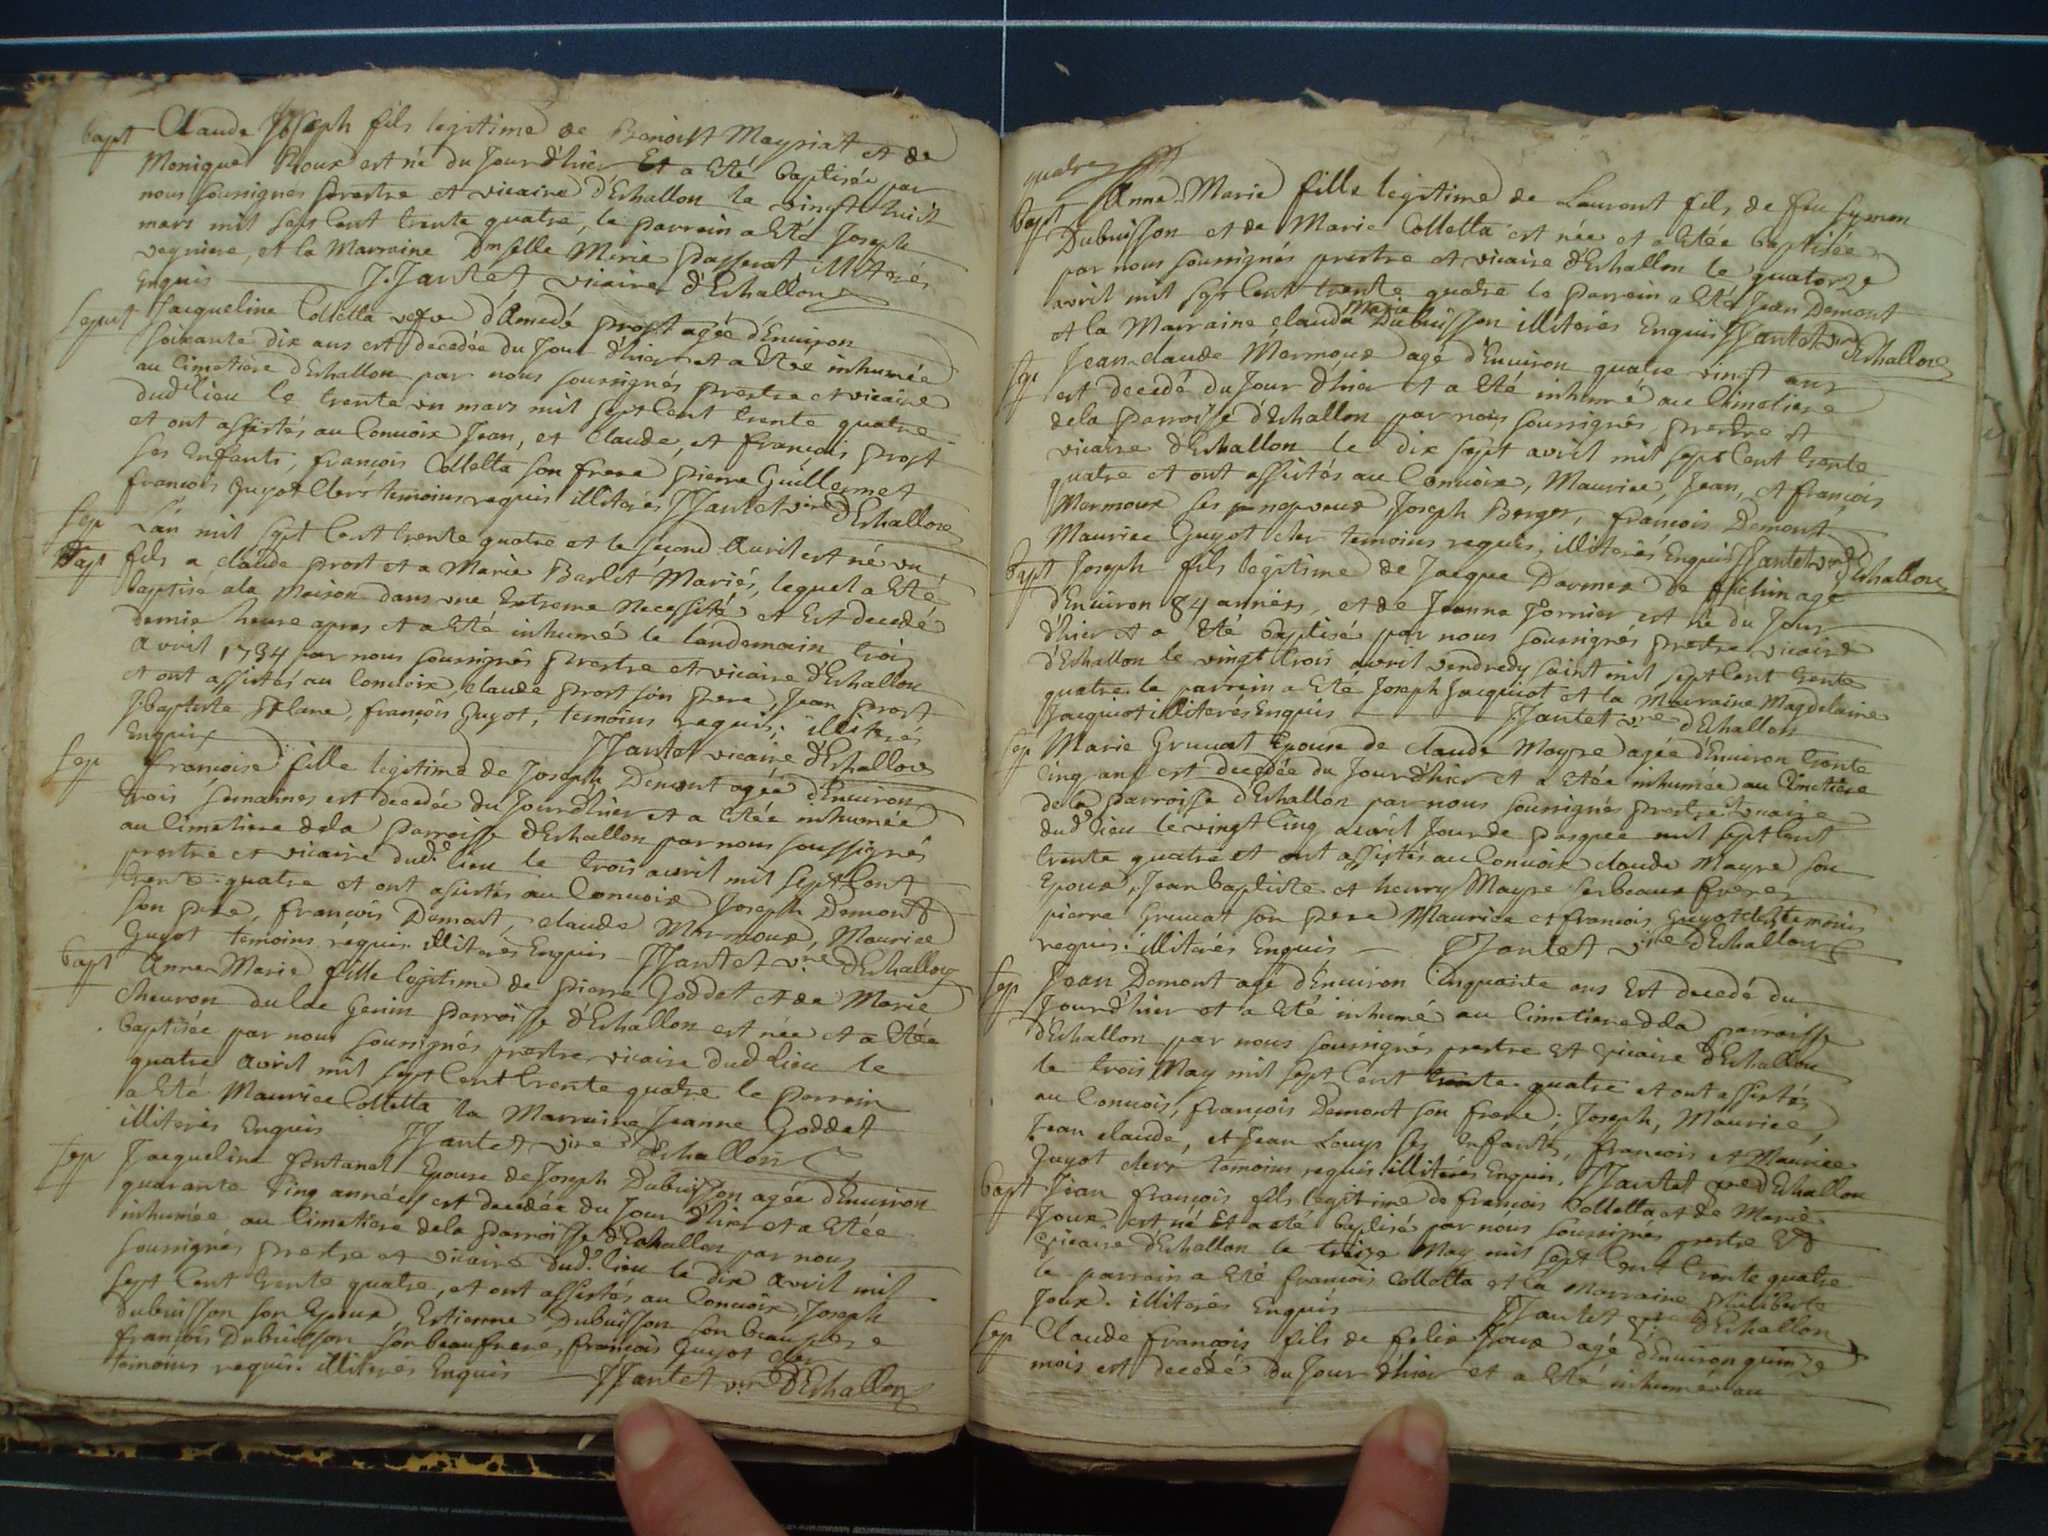 bapt Claude Joseph fils legitime de Benoist Meyriat et de
Monique Roux est né du Jour d'hier Et a Eté baptisée par
nous soussignes prestre et vicaire d'Echallon le vingt huit
mars mil sept Cent trente quatre, le parrain a Eté Joseph
veyriere, et la Marraine Dmselle Marie passerat illiterés
Enquis J. Jantet vicaire d'Echallon
sepult Jacqueline Colletta vefve d'Amedé prost agée d'Environ
soixante dix ans est decedée du Jour d'hier et a Eté inhumée
au Cimetiere d'Echallon par nous soussignés prestre et vicaire
dud. lieu le trente un mars mil sept Cent trente quatre
et ont assistés au Convoix Jean, et Claude, et françois prost
ses Enfants, françois Colletta son frere pierre Guillermet
francois Guyot Clers temoins requis illiterés JJantet vire d'Echallon
sep L'an mil sept Cent trente quatre et le second Avril est né un
Bapt fils a claude prost et a Marie Barlet Mariés, lequel a Eté
baptisé a la Maison dans une Extreme Necessité et Est decedé
demie heure apres et a Eté inhumé le lendemain trois
Avril 1734 par nous soussignés prestre et vicaire d'Echallon
et ont assistés au Convoix, claude prost son pere, Jean prost
J: baptiste plane, françois Guyot, temoins requis, illiterés
Enquis JJantet vicaire d'Echallon
sep francoise fille legitime de Joseph Demont agée d'Environ
trois semaines est decedée du Jour d'hier et a Etée inhumée
au Cimetiere dela parroisse d'Echallon par nous soussignés
prestre et vicaire dud. lieu le trois avril mil sept Cent
trente quatre et ont assistés au Convoix Joseph Demont
son pere, françois Demont, claude Mermoux, Maurice
Guyot temoins requis illiterés Enquis JJantet vire d'Echallon
bapt Anne Marie fille legitime de pierre Goddet et de Marie
chevron du lac Genin parroisse d'Echallon est née et a Etée
baptisée par nous soussignés prestre vicaire dud. lieu le
quatre Avril mil sept Cent trente quatre le parrain
a Eté Maurice Colletta la Marraine Jeanne Goddet
illiterés Enquis JJantet vire d'Echallon
sep Jacqueline fontanel Epouse de Joseph Dubuisson agée d'Environ
quarante Cinq années est decedée du Jour d'hier et a Etée
inhumée au Cimetiere dela parroisse d'Echallon par nous
soussignés prestre et vicaire dud. lieu le dix Avril mil
sept Cent trente quatre, et ont assistés au Convoix Joseph
Dubuisson son Epoux, Estienne Dubuisson son beau pere
françois Dubuisson son beau frere, françois Guyot cler
temoins requis. illiterés Enquis JJantet vire d'Echallon
quatre
bapt Anne-Marie fille legitime de Laurent fils de feu symon
Dubuisson et de Marie Colletta est née et a Etée baptisée
par nous soussignés prestre et vicaire d'Echallon le quatorze
avril mil sept Cent trente quatre le parrain a Eté Jean Demont
et la Marraine clauda Marie Dubuisson illiterés Enquis JJantet vire d'Echallon
sep Jean-claude Mermoux agé d'Environ quatre vingt ans
est decedé du Jour d'hier et a Eté inhumé au Cimetiere
dela parroisse d'Echallon par nous soussignés prestre et
vicaire d'Echallon le dix sept avril mil sept Cent trente
quatre et ont assistés au Convoix, Maurice, Jean, et françois
Mermoux ses nepveux, Joseph Berger, françois Demont
Maurice Guyot cler temoins requis, illiterés Enquis JJantet vire d'Echallon
bapt Joseph fils legitime de Jacque agé
d'Environ 84 années, et de Jeanne fornier est né du Jour
d'hier et a Eté baptisé par nous soussignés prestre vicaire
d'Echallon le vingt trois avril vendredy saint mil sept Cent trente
quatre. le parrain a Eté Joseph Jacquiot et la Marraine Magdelaine
Jacquiot illiterés Enquis JJantet vire d'Echallon
sep Marie Gruvat Epouse de claude Mayre agée d'Environ trente
Cinq ans est decedée du Jour d'hier et a Etée inhumée au Cimetiere
dela parroisse d'Echallon par nous soussignés prestre et vicaire
dud. lieu le vingt Cinq avril Jour de pasque mil sept Cent
trente quatre et ont assistés au Convoix claude Mayre son
Epoux, Jean baptiste et henry Mayre ses beaux freres
pierre Gruvat son pere Maurice et francois Guyot clers temoins
requis. illiterés Enquis JJantet vire d'Echallon
sep Jean Demont agé d'Environ Cinquante ans Est decedé du
Jour d'hier et a Eté inhumé au Cimetiere dela parroisse
d'Echallon par nous soussignés prestre et vicaire d'Echallon
le trois May mil sept Cent trente quatre et ont assistés
au Convois, françois Demont son frere, Joseph, Maurice,
Jean claude, et Jean Louys ses Enfants, francois et Maurice
Guyot clers temoins requis illiterés Enquis. JJantet vire d'Echallon
bapt Jean françois fils legitime de francois Colletta et de Marie
Joux est né Et a eté baptisé par nous soussignés prestre Et
vicaire d'Echallon le treize May mil sept Cent trente quatre
le parrain a Eté françois Colletta et la Marraine philiberte
Joux. illiterés Enquis JJantet vire d'Echallon
sep Claude françois fils de felix Joux agé d'Environ quinze
mois est decedé du Jour d'hier et a Eté inhumé au